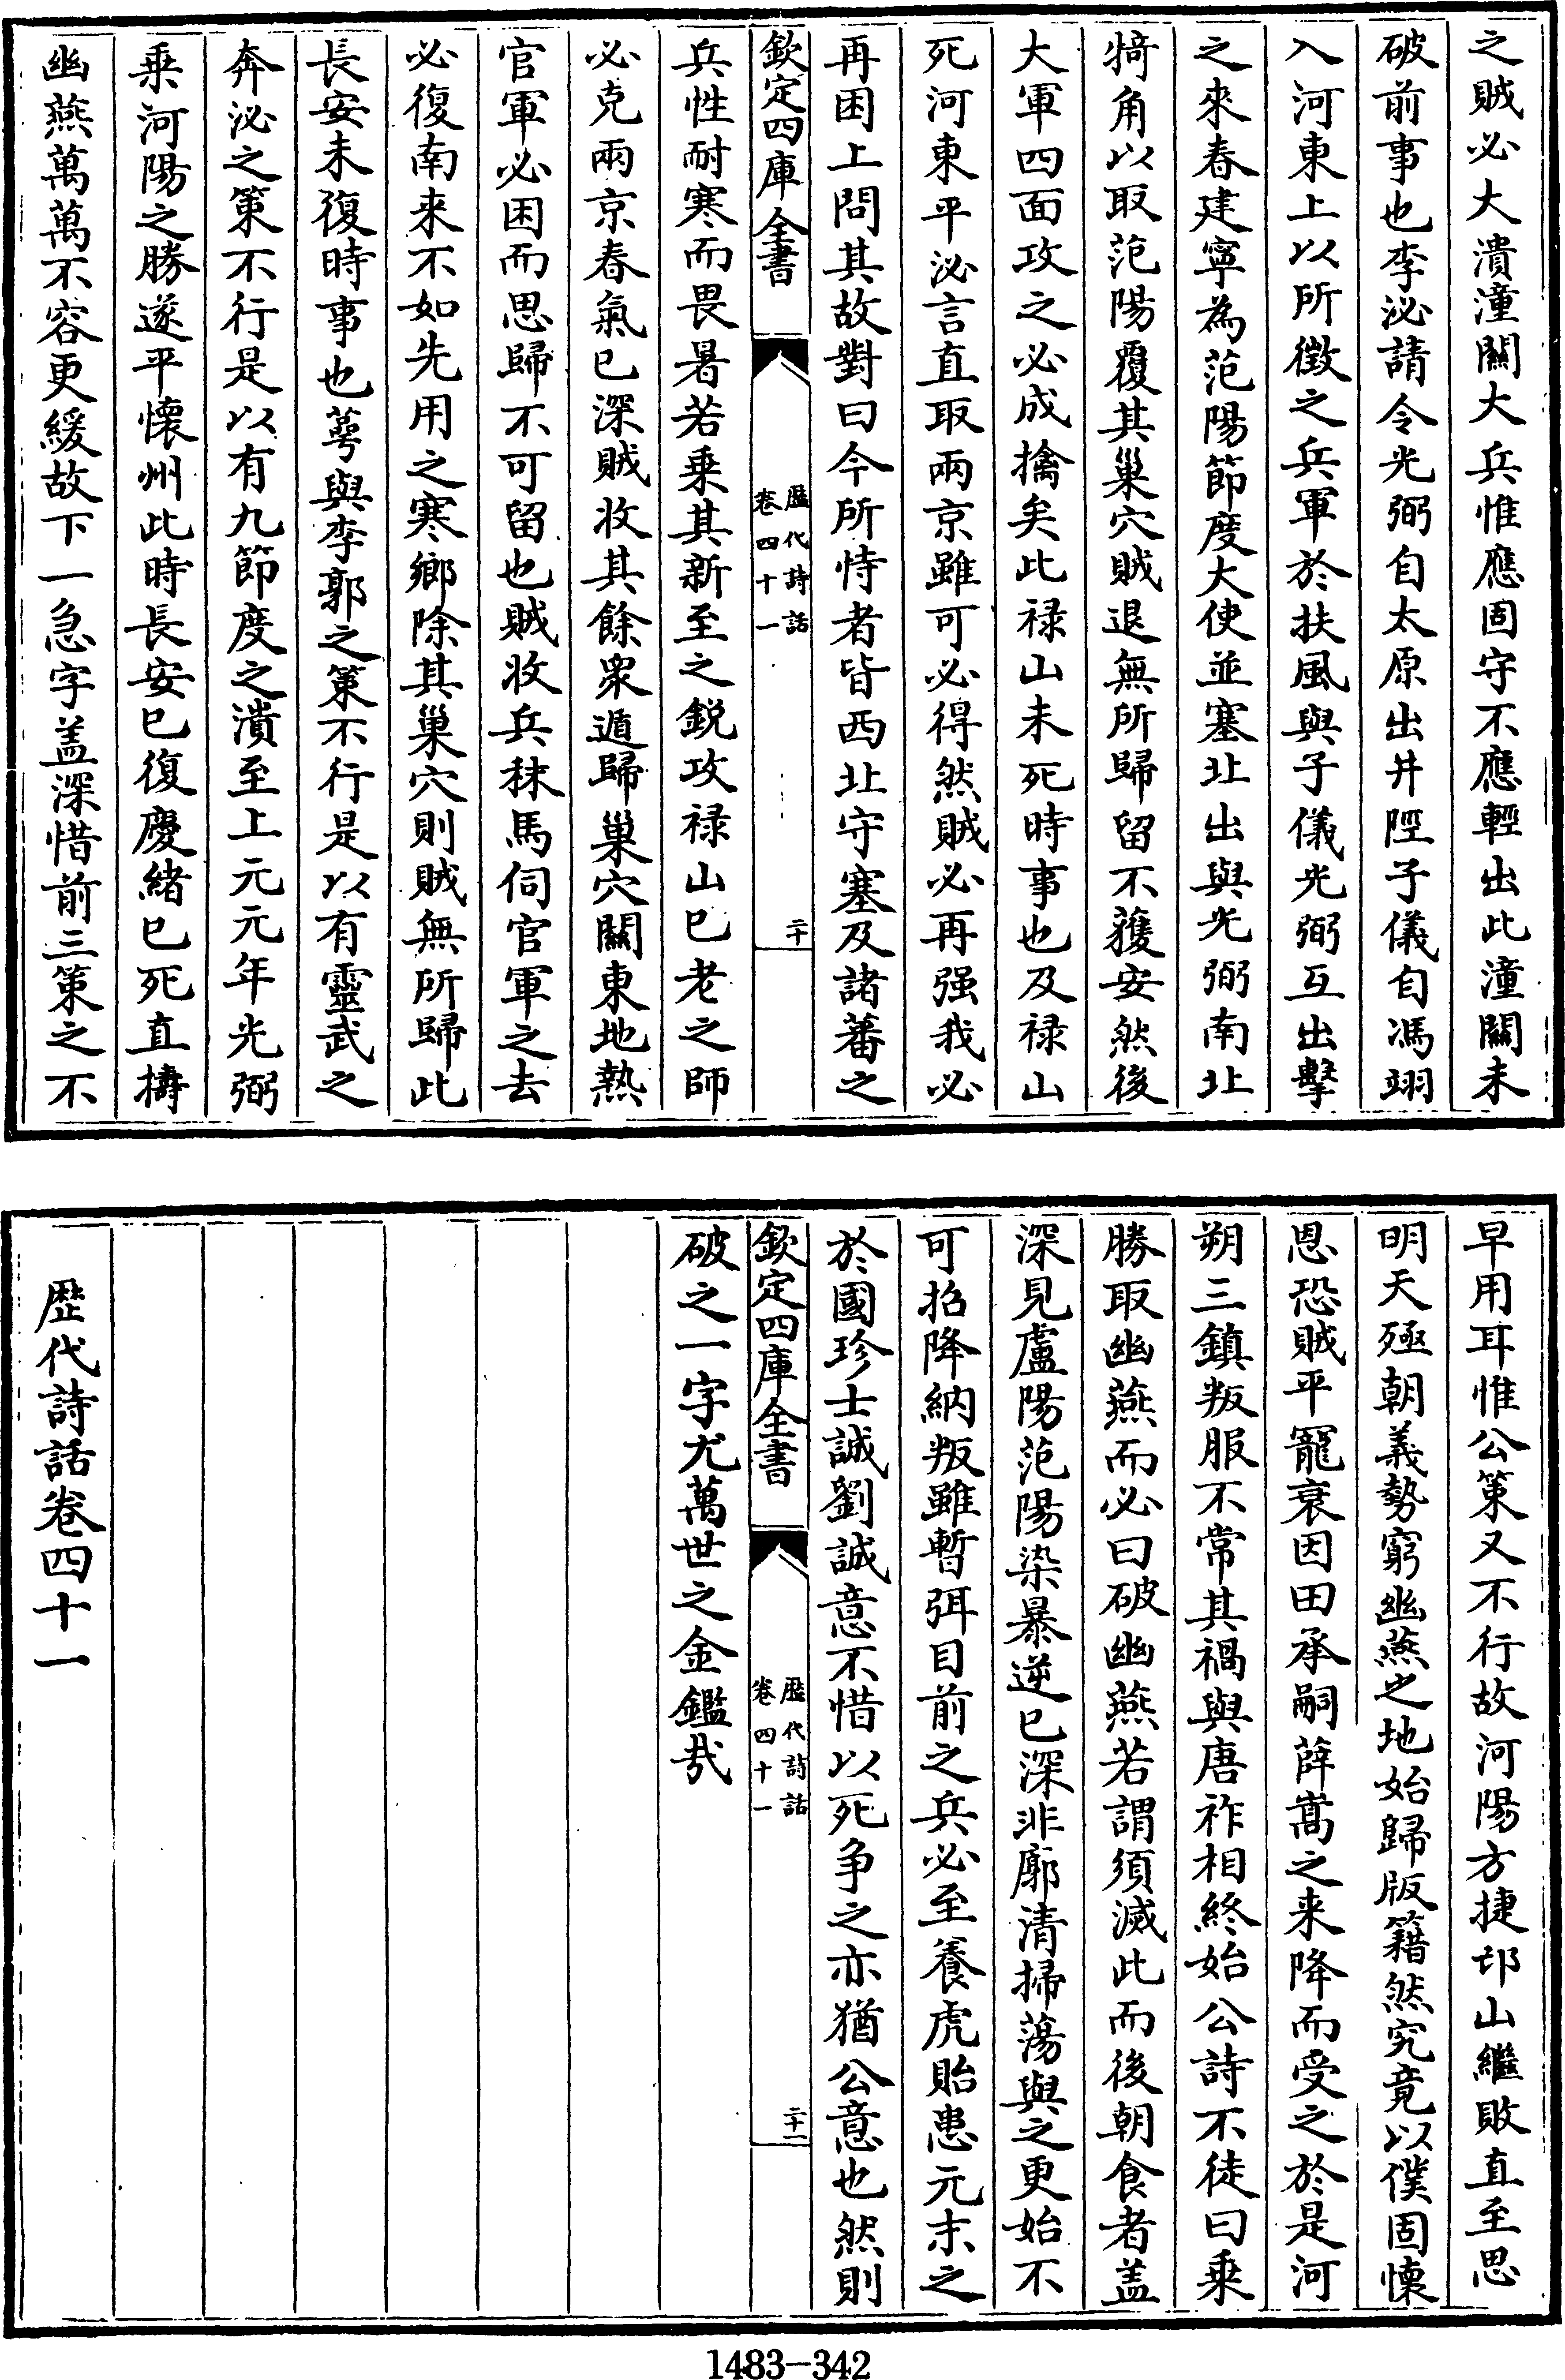 之賊必大潰潼關大兵惟應固守不應輕出此潼關未
破前事也李泌請令光弼自太原出井陘子儀自馮翊
入河東上以所徵之兵軍於扶風與子儀光弼互出擊
之來春建寧為范陽節度大使並塞北出與光弼南北
犄角以取范陽覆其巢穴賊退無所歸留不獲安然後
大軍四面攻之必成擒矣此禄山未死時事也及禄山
死河東平泌言直取兩京雖可必得然賊必再强我必
再困上問其故對曰今所恃者皆西北守塞及諸蕃之
欽定四庫全書
歷代詩話
卷四十一
二十
兵性耐寒而畏暑若乘其新至之鋭攻禄山已老之師
必克兩京春氣已深賊收其餘衆遁歸巢穴關東地熱
官軍必困而思歸不可留也賊收兵秣馬伺官軍之去
必復南来不如先用之寒鄉除其巢穴則賊無所歸此
長安未復時事也蕚與李郭之策不行是以有靈武之
奔泌之策不行是以有九節度之潰至上元元年光弼
乘河陽之勝遂平懷州此時長安已復慶緒已死直擣
幽燕萬萬不容更緩故下一急字盖深惜前三策之不
早用耳惟公策又不行故河陽方捷邙山繼敗直至思
明天殛朝義勢窮幽燕之地始歸版籍然究竟以僕固懷
恩恐賊平寵衰因田承嗣薛嵩之来降而受之於是河
朔三鎮叛服不常其禍與唐祚相終始公詩不徒曰乘
勝取幽燕而必曰破幽燕若謂須滅此而後朝食者盖
深見盧陽范陽染暴逆已深非廓清掃蕩與之更始不
可招降納叛雖暫弭目前之兵必至養虎貽患元末之
於國珍士誠劉誠意不惜以死争之亦猶公意也然則
欽定四庫全書
歷代詩話
卷四十一
二十一
破之一字尤萬世之金鑑哉
歷代詩話卷四十一
1483-342